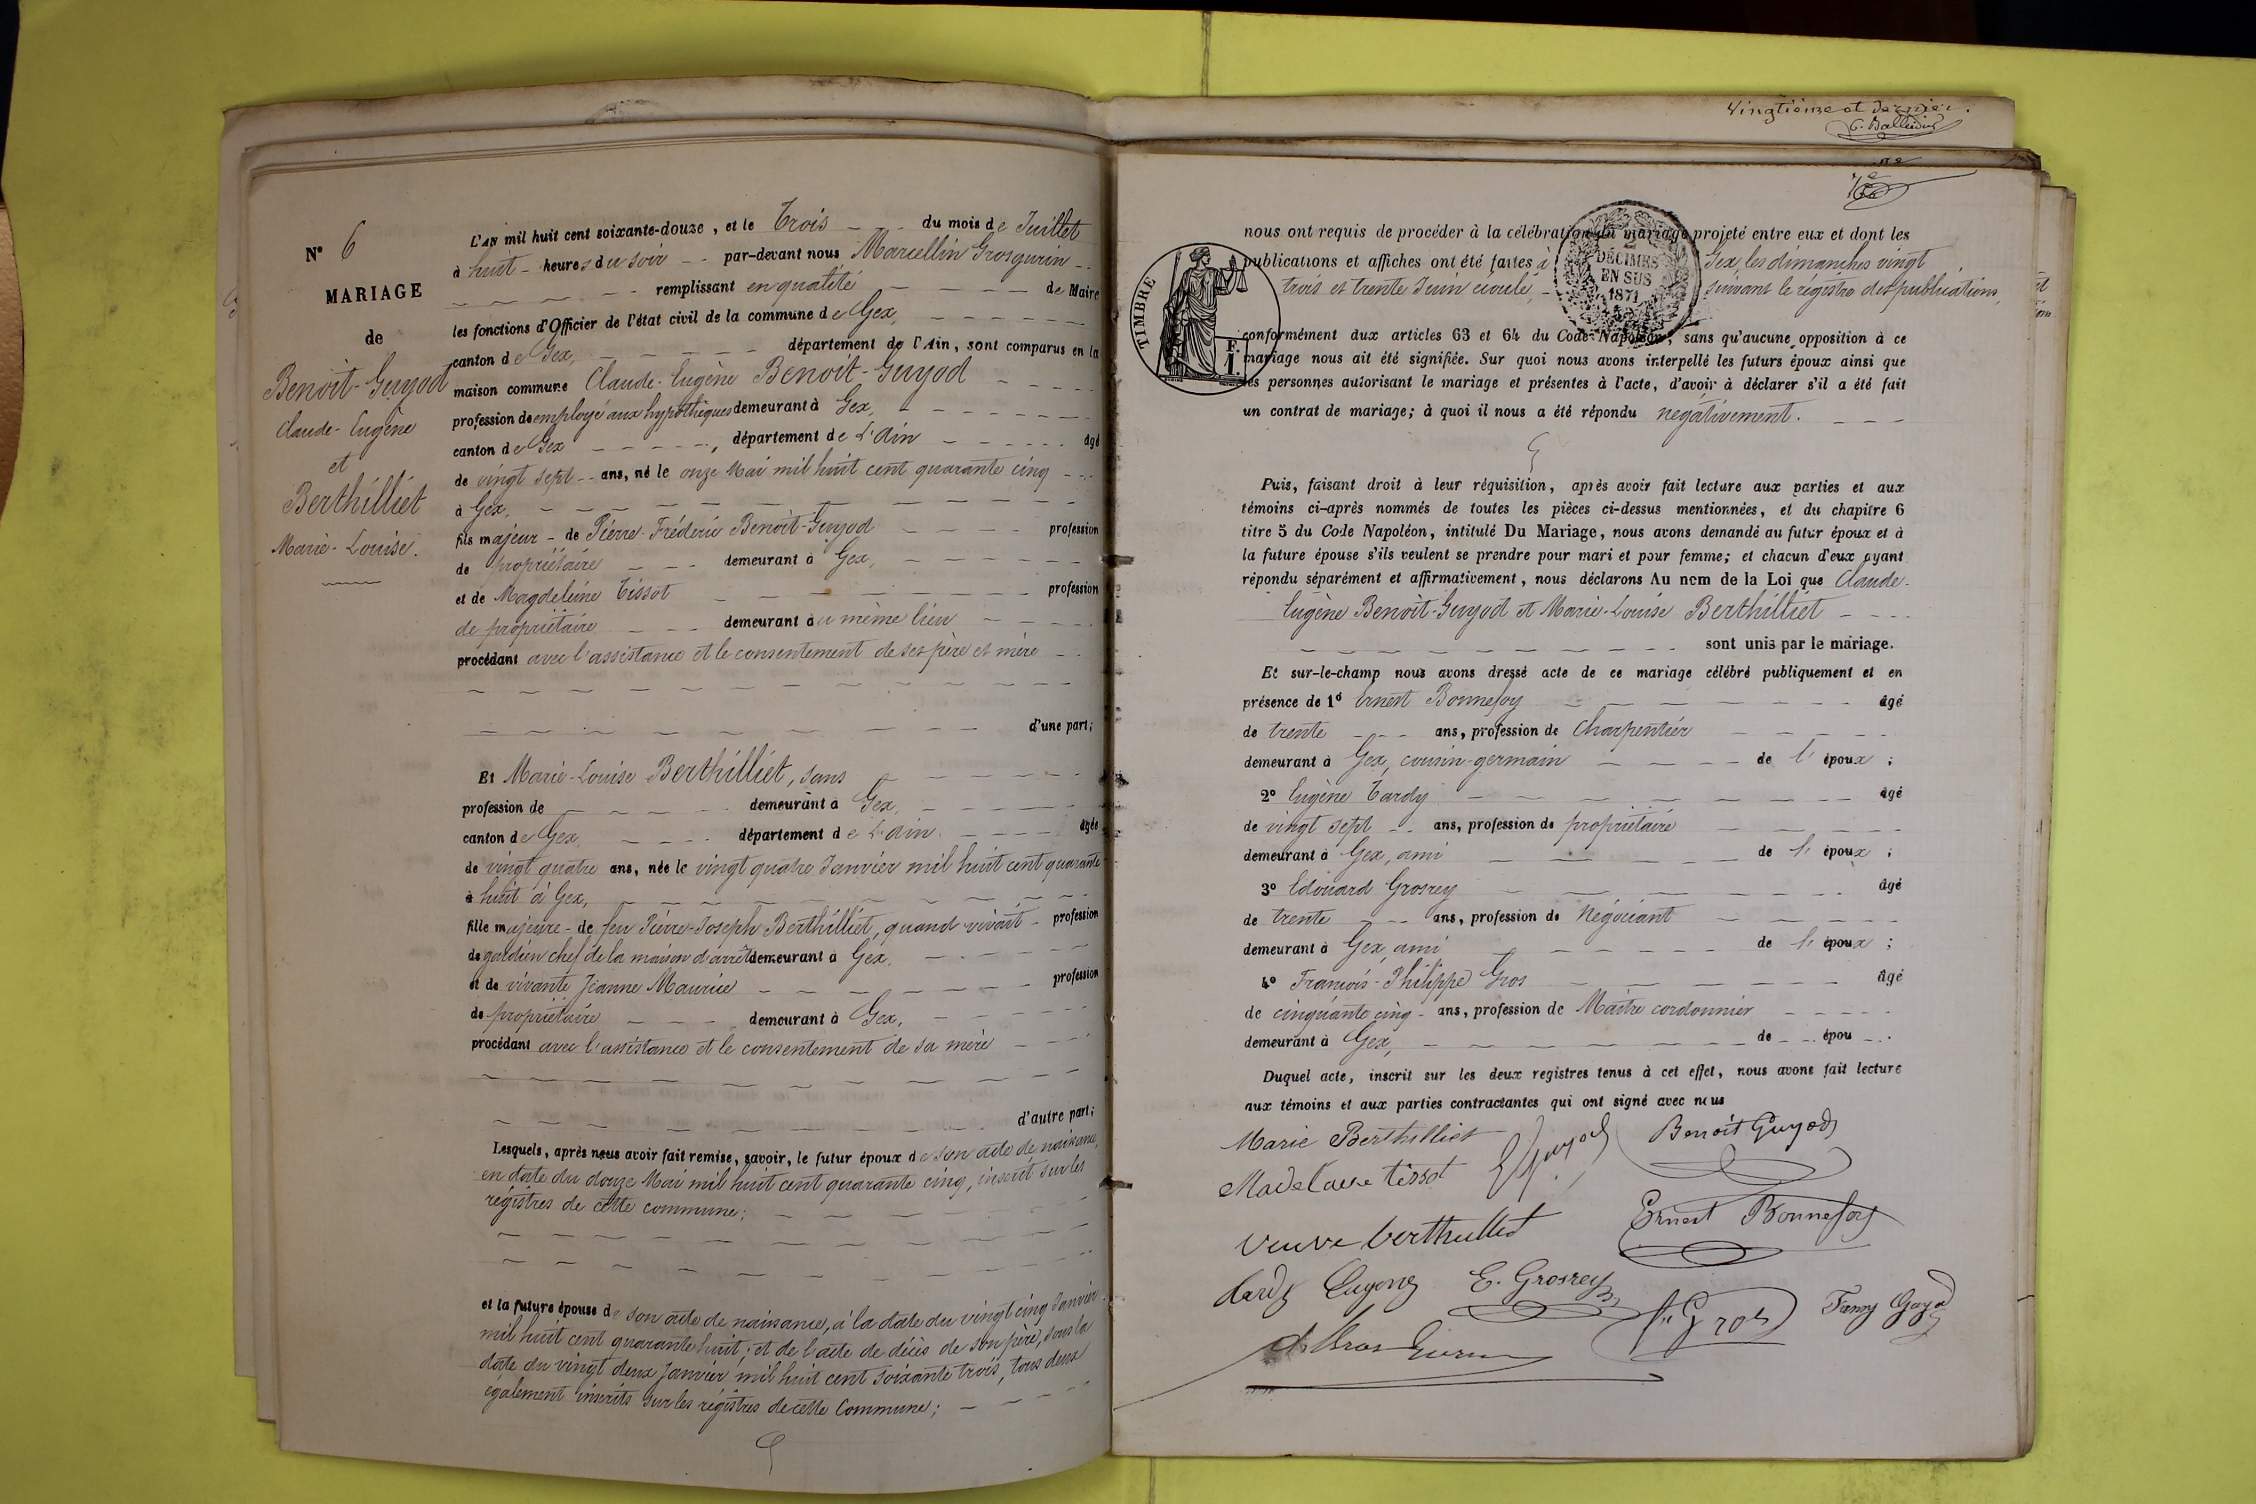 N° 6
MARIAGE
de
Benoit-Guyod
Claude-Eugène
et
Berthilliet
Marie-Louise.
L'AN mil huit cent soixante-douze, et le Trois du mois de Juillet
à huit heures du soir par-devant nous Marcellin Grosgurin
remplissant en qualité de Maire
les fonctions d'Officier de l'état civil de la commune de Gex,
canton de Gex, département de l'Ain, sont comparus en la
maison commune Claude-Eugène Benoit-Guyod
profession de employé aux hypothèques demeurant à Gex,
canton de Gex, département de L'Ain âgé
de vingt sept ans, né le onze Mai mil huit cent quarante cinq
à Gex,
fils majeur de Pierre-Fréderic Benoit-Guyod profession
de propriétaire demeurant à Gex,
et de Magdeleine Tissot profession
de propriétaire demeurant au même lieu
procédant avec l'assistance et le consentement de ses père et mère
d'une part;
Et Marie-Louise Berthilliet, sans
profession de demeurant à Gex,
canton de Gex, département de L'Ain. âgée
de vingt quatre ans, née le vingt quatre Janvier mil huit cent quarante
à huit à Gex,
fille majeure de feu Pierre-Joseph Berthilliet, quand vivait profession
de gardien chef de la maison d'arrêt demeurant à Gex.
et de vivante Jeanne Maurice profession
de propriétaire demeurant à Gex,
procédant avec l'assistance et le consentement de sa mère
d'autre part;
Lesquels, après nous avoir fait remise, savoir, le futur époux de son acte de naissance,
en date du douze Mai mil huit cent quarante cinq, inscrit sur les
régistres de cette commune;
et la future épouse de son acte de naissance, à la date du vingt cinq Janvier
mil huit cent quarante huit; et de l'acte de décès de son père, sous la
date du vingt deux Janvier mil huit cent soixante trois, tous deux
également inscrits sur les régistres de cette Commune;
Vingtième et dernier.
nous ont requis de procéder à la célébration du mariage projeté entre eux et dont les
publications et affiches ont été faites à Gex les dimanches vingt
trois et trente Juin écoulé, suivant le régistre des publications,
TIMBRE
F.
1.
2
DÉCIMES
EN SUS
1871
conformément aux articles 63 et 64 du Code Napoléon, sans qu'aucune opposition à ce
mariage nous ait été signifiée. Sur quoi nous avons interpellé les futurs époux ainsi que
les personnes autorisant le mariage et présentes à l'acte, d'avoir à déclarer s'il a été fait
un contrat de mariage; à quoi il nous a été répondu négativement.
Puis, faisant droit à leur réquisition, après avoir fait lecture aux parties et aux
témoins ci-après nommés de toutes les pièces ci-dessus mentionnées, et du chapitre 6
titre 5 du Code Napoléon, intitulé Du Mariage, nous avons demandé au futur époux et à
la future épouse s'ils veulent se prendre pour mari et pour femme; et chacun d'eux ayant
répondu séparément et affirmativement, nous déclarons Au nom de la Loi que Claude-
Eugène Benoit-Guyod et Marie-Louise Berthilliet
sont unis par le mariage.
Et sur-le-champ nous avons dressé acte de ce mariage célébré publiquement et en
présence de 1° Ernest Bonnefoy âgé
de trente ans, profession de Charpentier
demeurant à Gex, cousin-germain de l'époux;
2° Eugène Tardy âgé
de vingt sept ans, profession de propriétaire
demeurant à Gex, ami de l'époux;
3° Edouard Grosrey âgé
de trente ans, profession de Négociant
demeurant à Gex, ami de l'époux;
4° François-Philippe Gros âgé
de cinquante cinq ans, profession de Maître cordonnier
demeurant à Gex, de épou
Duquel acte, inscrit sur les deux registres tenus à cet effet, nous avons fait lecture
aux témoins et aux parties contractantes qui ont signé avec nous
Marie Berthilliet Guyod Benoit Guyod
Madelaine tissot
Ernest Bonnefoy
Veuve berthilliet
tardy Eugene E. Grosrey
Gros Fanny Guyod